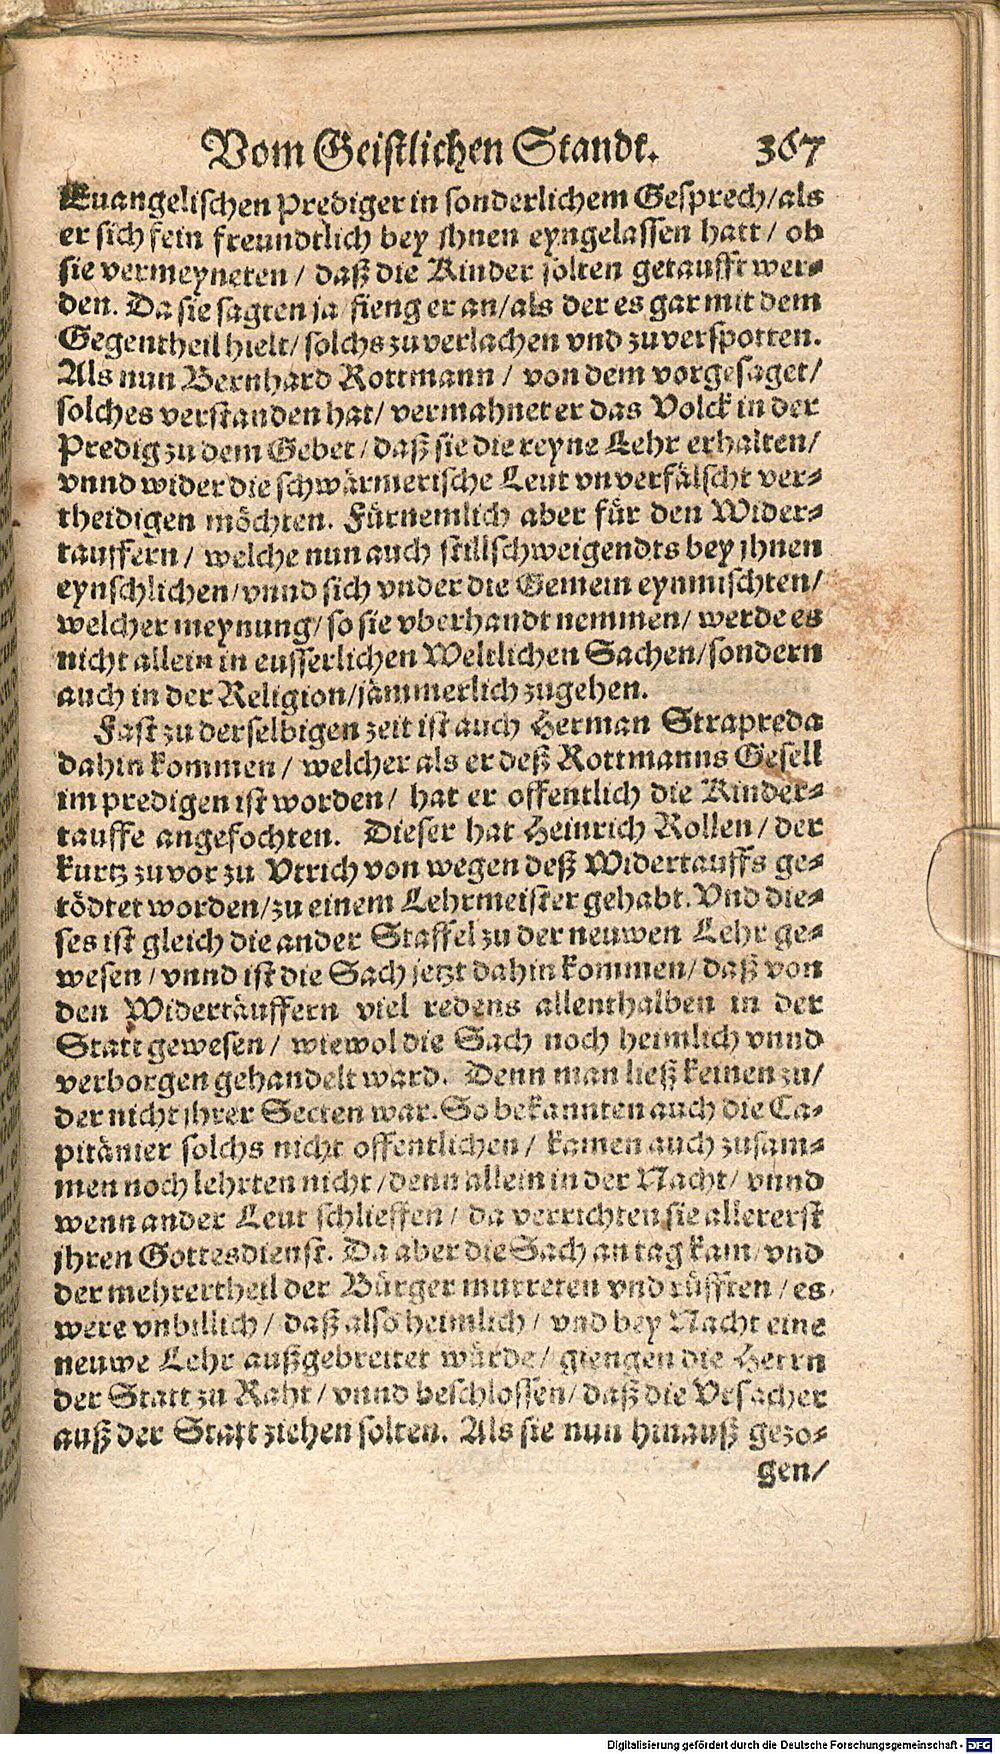 Vom Geistlichen Standt. 367
Euangelischen Prediger in sonderlichem Gesprech/als
er sich fein freundtlich bey jhnen eyngelassen hatt/ ob
sie vermeyneten/ daß die Kinder solten getaufft wer-
den. Da sie sagten ja/ fieng er an/als der es gar mit dem
Gegentheil hielt/ solchs zuverlachen vnd zuverspotten.
Als nun Bernhard Rottmann/ von dem vorgesaget/
solches verstanden hat/ vermahnet er das Volck in der
Predig zu dem Gebet/ daß sie die reyne Lehr erhalten/
vnnd wider die schwärmerische Leut vnverfälscht ver-
theidigen möchten. Fürnemlich aber für den Wider-
tauffern/ welche nun auch stillschweigendts bey jhnen
eynschlichen/vnnd sich vnder die Gemein eynmischten/
welcher meynung/ so sie vberhandt nemmen/ werde es
nicht allein in eusserlichen Weltlichen Sachen/sondern
auch in der Religion/jämmerlich zugehen.
Fast zu derselbigen zeit ist auch Herman Strapreda
dahin kommen/ welcher als er deß Rottmanns Gesell
im predigen ist worden/ hat er offentlich die Kinder-
tauffe angefochten. Dieser hat Heinrich Rollen/ der
kurtz zuvor zu Vtrich von wegen deß Widertauffs ge-
tödtet worden/zu einem Lehrmeister gehabt. Vnd die-
ses ist gleich die ander Staffel zu der neuwen Lehr ge-
wesen/ vnnd ist die Sach jetzt dahin kommen/ daß von
den Widertäuffern viel redens allenthalben in der
Statt gewesen/ wiewol die Sach noch heimlich vnnd
verborgen gehandelt ward. Denn man ließ keinen zu/
der nicht jhrer Secten war. So bekannten auch die Ca-
pitänier solchs nicht offentlichen/ kamen auch zusam-
men noch lehrten nicht/denn allein in der Nacht/ vnnd
wenn ander Leut schlieffen/ da verrichten sie allererst
jhren Gottesdienst. Da aber die Sach an tag kam/ vnd
der mehrertheil der Bürger murreten vnd rüfften/ es
were vnbillich/ daß also heimlich/ vnd bey Nacht eine
neuwe Lehr außgebreitet würde/ giengen die Herrn
der Statt zu Raht/ vnnd beschlossen/ daß die Vrsacher
auß der Statt ziehen solten. Als sie nun hinauß gezo-
gen/
Digitalisierung gefördert durch die Deutsche Forschungsgemeinschaft - DFG